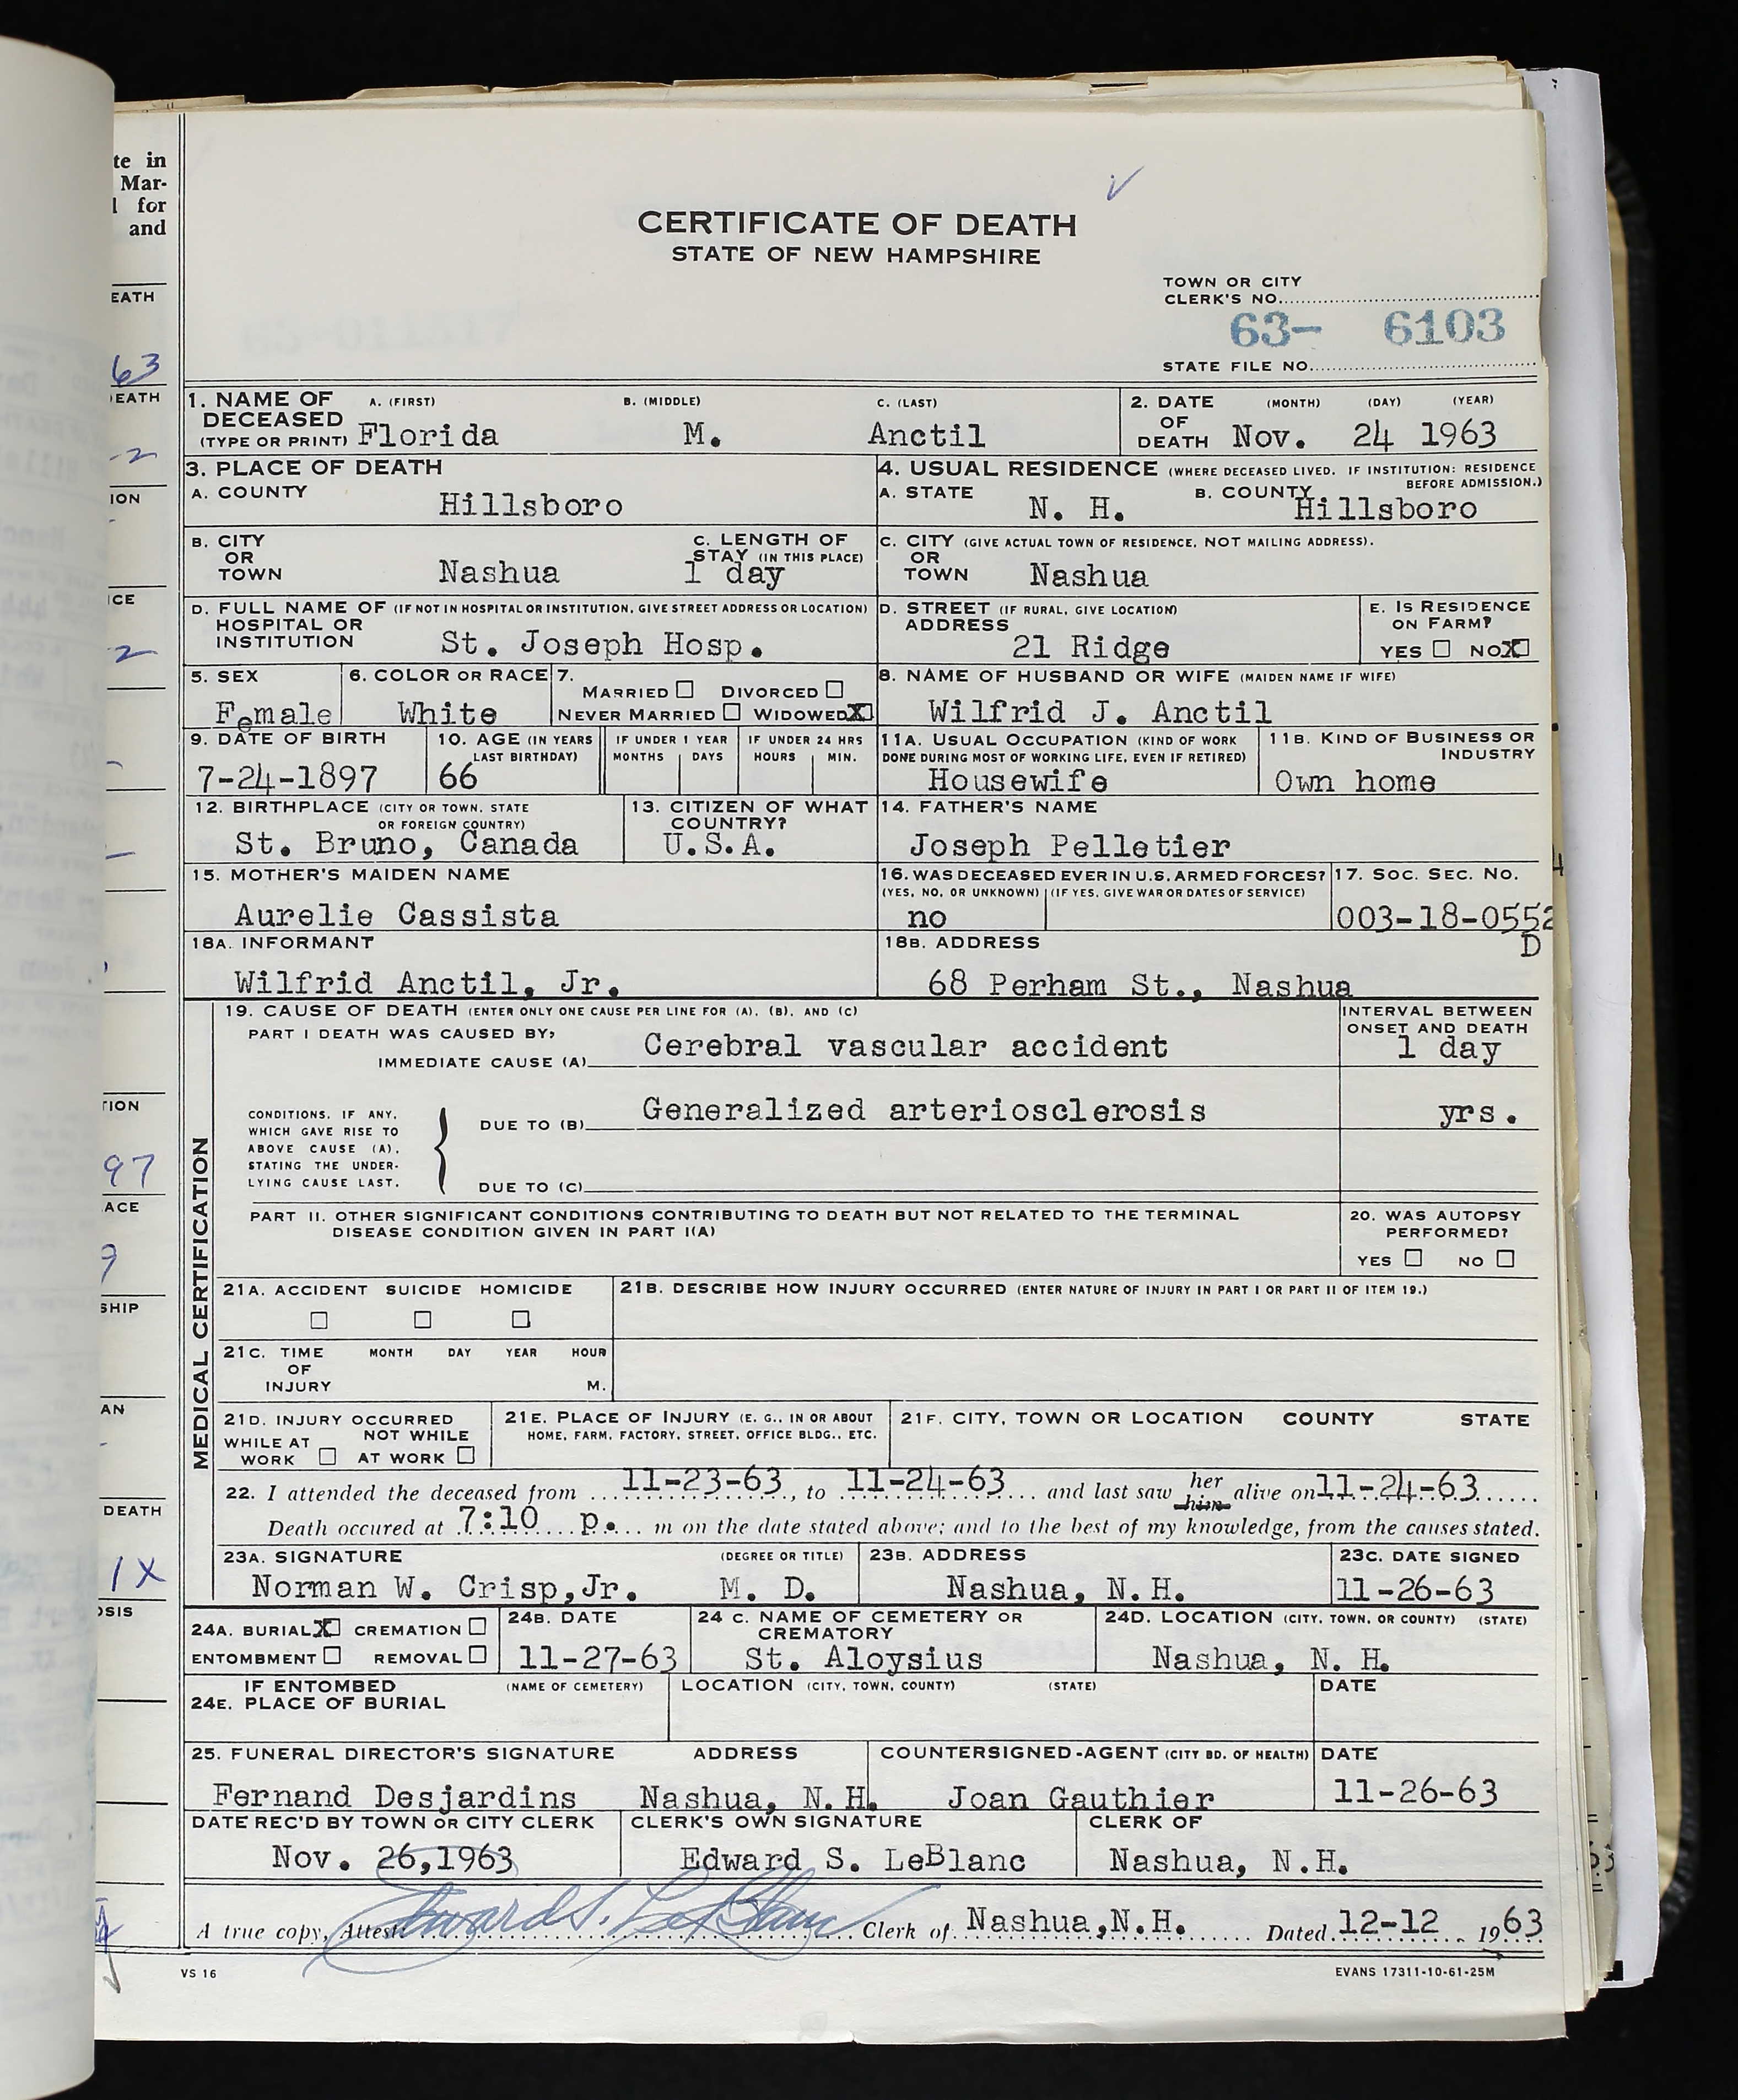 te in
Mar-
l for
and
EATH
63
EATH
-2
ION
ICE
2
TION
97
ACE
SHIP
AN
DEATH
1X
OSIS
CERTIFICATE OF DEATH
STATE OF NEW HAMPSHIRE
TOWN OR CITY
CLERK'S NO.
63- 6103
STATE FILE NO.
1. NAME OF DECEASED (TYPE OR PRINT) A. (FIRST) B. (MIDDLE) C. (LAST)
Florida M. Anctil
2. DATE OF DEATH (MONTH) (DAY) (YEAR)
Nov. 24 1963
3. PLACE OF DEATH
A. COUNTY
Hillsboro
4. USUAL RESIDENCE (WHERE DECEASED LIVED. IF INSTITUTION: RESIDENCE BEFORE ADMISSION.)
A. STATE N. H. B. COUNTY Hillsboro
B. CITY OR TOWN Nashua
C. LENGTH OF STAY (IN THIS PLACE) 1 day
C. CITY (GIVE ACTUAL TOWN OF RESIDENCE, NOT MAILING ADDRESS).
OR TOWN Nashua
D. FULL NAME OF (IF NOT IN HOSPITAL OR INSTITUTION, GIVE STREET ADDRESS OR LOCATION)
HOSPITAL OR
INSTITUTION St. Joseph Hosp.
D. STREET (IF RURAL, GIVE LOCATION)
ADDRESS 21 Ridge
E. IS RESIDENCE ON FARM?
YES NO X
5. SEX
Female
6. COLOR OR RACE
White
7. MARRIED DIVORCED
NEVER MARRIED WIDOWED X
8. NAME OF HUSBAND OR WIFE (MAIDEN NAME IF WIFE)
Wilfrid J. Anctil
9. DATE OF BIRTH
7-24-1897
10. AGE (IN YEARS LAST BIRTHDAY)
66
IF UNDER 1 YEAR
MONTHS DAYS
IF UNDER 24 HRS
HOURS MIN.
11A. USUAL OCCUPATION (KIND OF WORK DONE DURING MOST OF WORKING LIFE, EVEN IF RETIRED)
Housewife
11B. KIND OF BUSINESS OR INDUSTRY
Own home
12. BIRTHPLACE (CITY OR TOWN, STATE OR FOREIGN COUNTRY)
St. Bruno, Canada
13. CITIZEN OF WHAT COUNTRY?
U.S.A.
14. FATHER'S NAME
Joseph Pelletier
15. MOTHER'S MAIDEN NAME
Aurelie Cassista
16. WAS DECEASED EVER IN U.S. ARMED FORCES?
(YES, NO, OR UNKNOWN) (IF YES, GIVE WAR OR DATES OF SERVICE)
no
17. SOC. SEC. NO.
003-18-0552
D
18A. INFORMANT
Wilfrid Anctil, Jr.
18B. ADDRESS
68 Perham St., Nashua
MEDICAL CERTIFICATION
19. CAUSE OF DEATH (ENTER ONLY ONE CAUSE PER LINE FOR (A), (B), AND (C)
INTERVAL BETWEEN ONSET AND DEATH
PART I DEATH WAS CAUSED BY,
IMMEDIATE CAUSE (A) Cerebral vascular accident 1 day
CONDITIONS, IF ANY,
WHICH GAVE RISE TO
ABOVE CAUSE (A),
STATING THE UNDER-
LYING CAUSE LAST.
DUE TO (B) Generalized arteriosclerosis yrs.
DUE TO (C)
PART II. OTHER SIGNIFICANT CONDITIONS CONTRIBUTING TO DEATH BUT NOT RELATED TO THE TERMINAL
DISEASE CONDITION GIVEN IN PART I(A)
20. WAS AUTOPSY PERFORMED?
YES NO
21A. ACCIDENT SUICIDE HOMICIDE
21B. DESCRIBE HOW INJURY OCCURRED (ENTER NATURE OF INJURY IN PART I OR PART II OF ITEM 19.)
21C. TIME OF INJURY MONTH DAY YEAR HOUR
M.
21D. INJURY OCCURRED
WHILE AT WORK NOT WHILE AT WORK
21E. PLACE OF INJURY (E. G., IN OR ABOUT HOME, FARM, FACTORY, STREET, OFFICE BLDG., ETC.
21F. CITY, TOWN OR LOCATION COUNTY STATE
22. I attended the deceased from 11-23-63, to 11-24-63 and last saw her him alive on 11-24-63
Death occured at 7:10 p. m on the date stated above; and to the best of my knowledge, from the causes stated.
23A. SIGNATURE (DEGREE OR TITLE)
Norman W. Crisp, Jr. M. D.
23B. ADDRESS
Nashua, N.H.
23C. DATE SIGNED
11-26-63
24A. BURIAL X CREMATION
ENTOMBMENT REMOVAL
24B. DATE
11-27-63
24 C. NAME OF CEMETERY OR CREMATORY
St. Aloysius
24D. LOCATION (CITY, TOWN, OR COUNTY) (STATE)
Nashua, N. H.
IF ENTOMBED (NAME OF CEMETERY) LOCATION (CITY, TOWN, COUNTY) (STATE) DATE
24E. PLACE OF BURIAL
25. FUNERAL DIRECTOR'S SIGNATURE ADDRESS
Fernand Desjardins Nashua, N. H.
COUNTERSIGNED-AGENT (CITY BD. OF HEALTH)
Joan Gauthier
DATE
11-26-63
DATE REC'D BY TOWN OR CITY CLERK
Nov. 26, 1963
CLERK'S OWN SIGNATURE
Edward S. LeBlanc
CLERK OF
Nashua, N.H.
A true copy, Attest: Edward S. LeBlanc Clerk of Nashua, N.H. Dated 12-12 1963
VS 16
EVANS 17311-10-61-25M